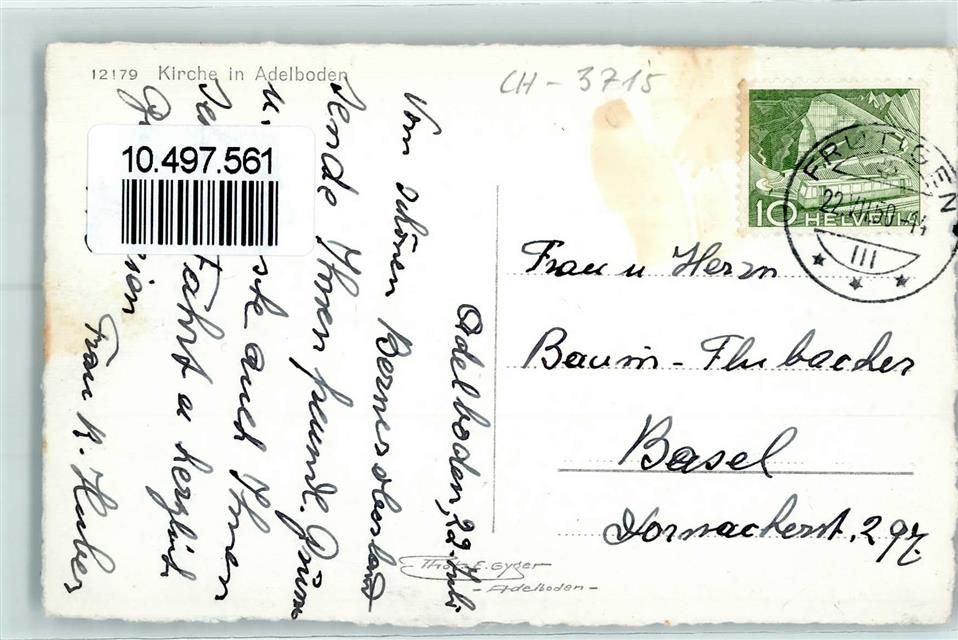 12179 Kirche in Adelboden
CH - 3715
10.497.561
10 HELVETIA
FRUTIGEN
22.VII.50-14
III
Adelboden, 22. Juli
Vom schönen Berneroberland
sende Ihnen freundl. Grüsse
auch Ihnen
Fahrt u herzlich
Frau K. Huber
Frau u Herrn
Baum-Flubacher
Basel
Dornacherst. 297
Phot. E. Gyger
- Adelboden -